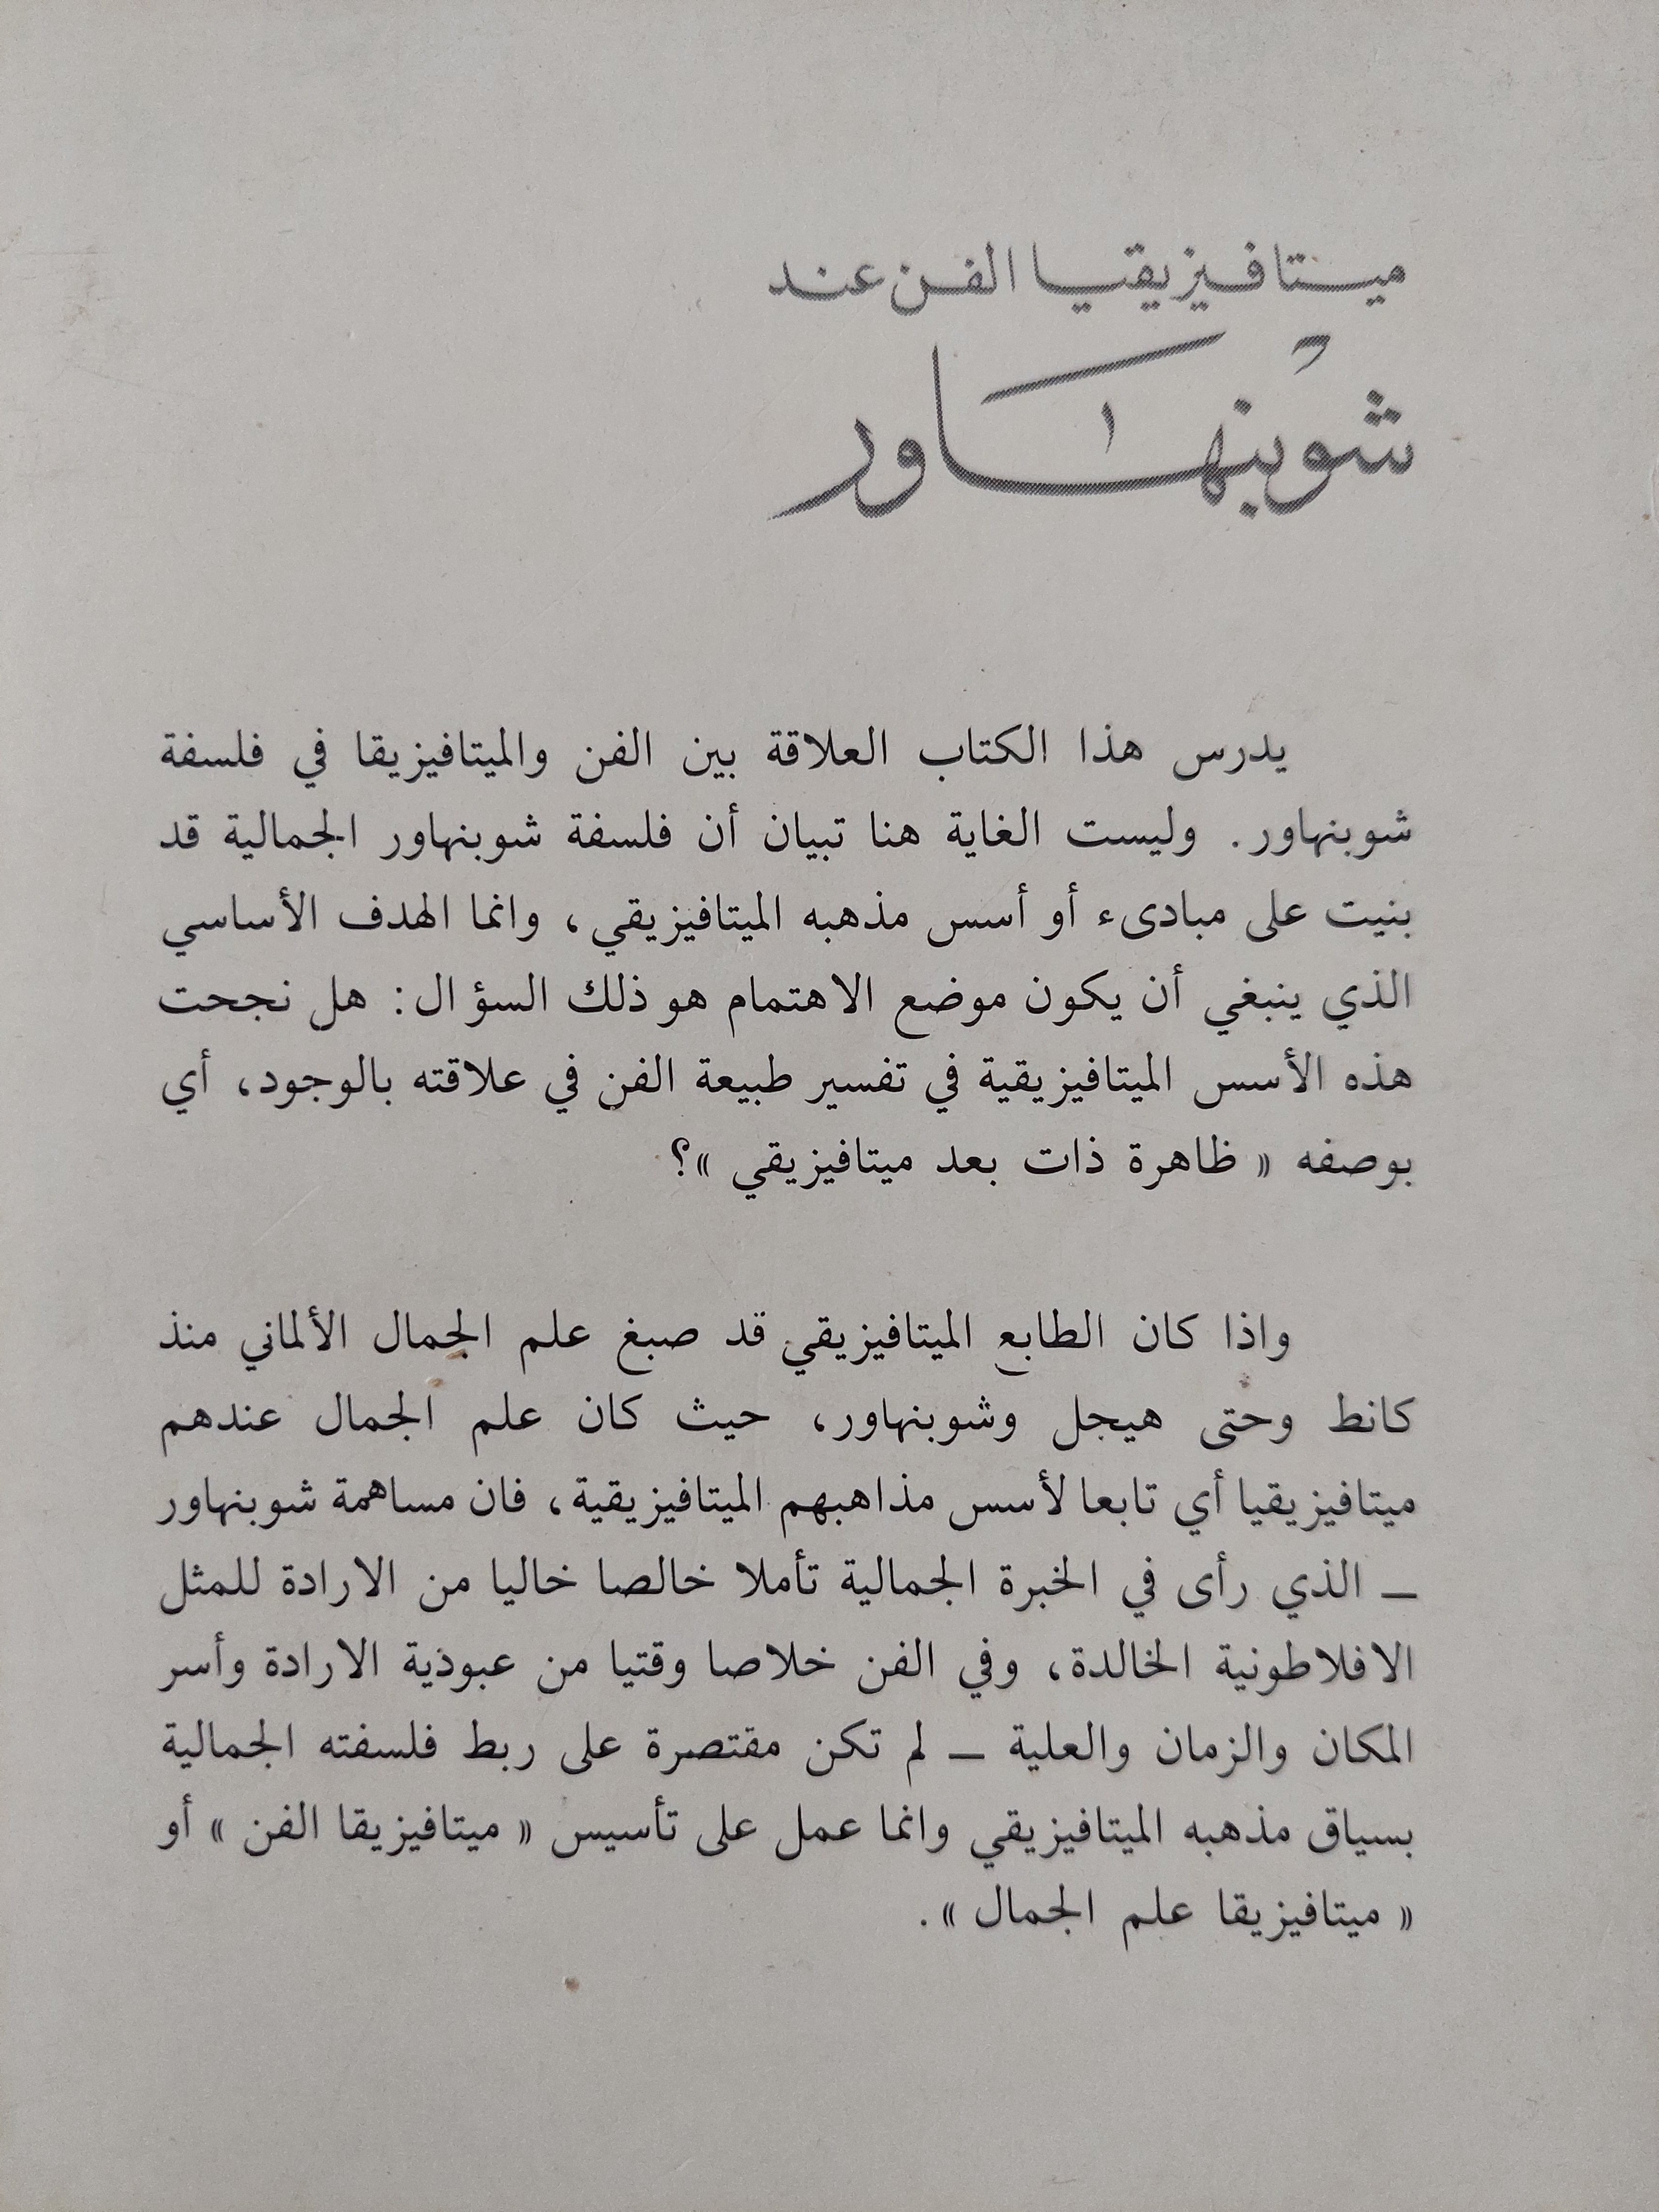 ميتافيزيقيا الفن عند
شوبنهاور
يدرس هذا الكتاب العلاقة بين الفن والميتافيزيقا في فلسفة
شوبنهاور. وليست الغاية هنا تبيان أن فلسفة شوبنهاور الجمالية قد
بنيت على مبادىء أو أسس مذهبه الميتافيزيقي، وانما الهدف الأساسي
الذي ينبغي أن يكون موضع الاهتمام هو ذلك السؤال: هل نجحت
هذه الأسس الميتافيزيقية في تفسير طبيعة الفن في علاقته بالوجود، أي
بوصفه « ظاهرة ذات بعد ميتافيزيقي »؟
واذا كان الطابع الميتافيزيقي قد صبغ علم الجمال الألماني منذ
كانط وحتى هيجل وشوبنهاور، حيث كان علم الجمال عندهم
ميتافيزيقيا أي تابعا لأسس مذاهبهم الميتافيزيقية، فان مساهمة شوبنهاور
ــ الذي رأى في الخبرة الجمالية تأملا خالصا خاليا من الارادة للمثل
الافلاطونية الخالدة، وفي الفن خلاصا وقتيا من عبوذية الارادة وأسر
المكان والزمان والعلية ــ لم تكن مقتصرة على ربط فلسفته الجمالية
بسياق مذهبه الميتافيزيقي وانما عمل على تأسيس « ميتافيزيقا الفن » أو
« ميتافيزيقا علم الجمال ».